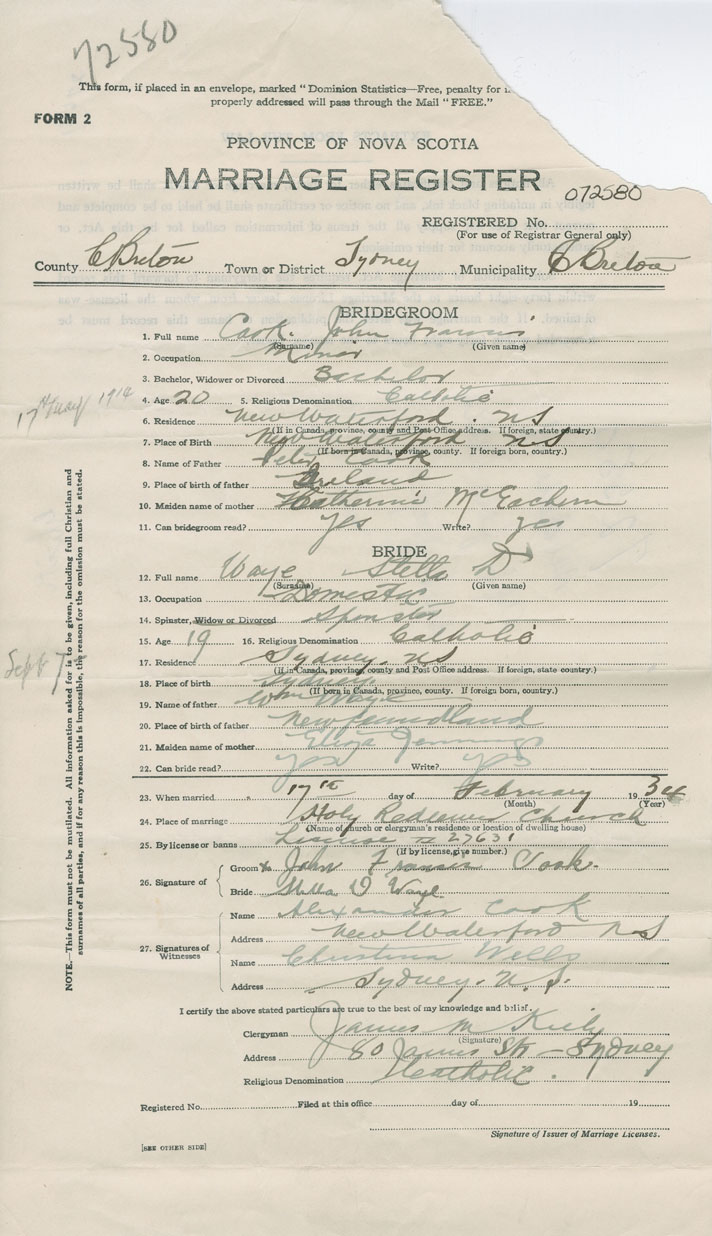 72580
This form, if placed in an envelope, marked "Dominion Statistics—Free, penalty for
properly addressed will pass through the Mail "FREE."
FORM 2
PROVINCE OF NOVA SCOTIA
MARRIAGE REGISTER
072580
REGISTERED No.
(For use of Registrar General only)
County C Breton Town or District Sydney Municipality C Breton
BRIDEGROOM
1. Full name Cook John Francis
(Surname) (Given name)
2. Occupation Minor
3. Bachelor, Widower or Divorced Bachelor
17th 1914
4. Age 20 5. Religious Denomination Catholic
6. Residence New Waterford. NS
(If in Canada, province, county and Post Office address. If foreign, state country.)
7. Place of Birth New Waterford NS
(If born in Canada, province, county. If foreign born, country.)
8. Name of Father Peter Cook
9. Place of birth of father Ireland
10. Maiden name of mother Katherine McEachern
11. Can bridegroom read? yes Write? yes
BRIDE
12. Full name Waye Stella D
(Surname) (Given name)
13. Occupation Domestic
14. Spinster, Widow or Divorced Spinster
15. Age 19 16. Religious Denomination Catholic
Sept 7
17. Residence Sydney. NS
(If in Canada, province, county and Post Office address. If foreign, state country.)
18. Place of birth Sydney
(If born in Canada, province, county. If foreign born, country.)
19. Name of father Wm Waye
20. Place of birth of father Newfoundland
21. Maiden name of mother Eliza
22. Can bride read? yes Write? yes
23. When married 17th day of February 1934
(Month) (Year)
24. Place of marriage Holy Redeemer Church
(Name of church or clergyman's residence or location of dwelling house)
25. By license or banns License 27631
(If by license, give number.)
26. Signature of
Groom x John Francis Cook.
Bride Stella D Waye
27. Signatures of Witnesses
Name Alexander Cook
Address New Waterford NS
Name Christina Wells
Address Sydney. N.S.
I certify the above stated particulars are true to the best of my knowledge and belief.
Clergyman James M Kiely
(Signature)
Address 80 James St - Sydney
Religious Denomination Catholic.
Registered No. Filed at this office day of 19
Signature of Issuer of Marriage Licenses.
[SEE OTHER SIDE]
NOTE.—This form must not be mutilated. All information asked for is to be given, including full Christian and
surnames of all parties, and if for any reason this is impossible, the reason for the omission must be stated.